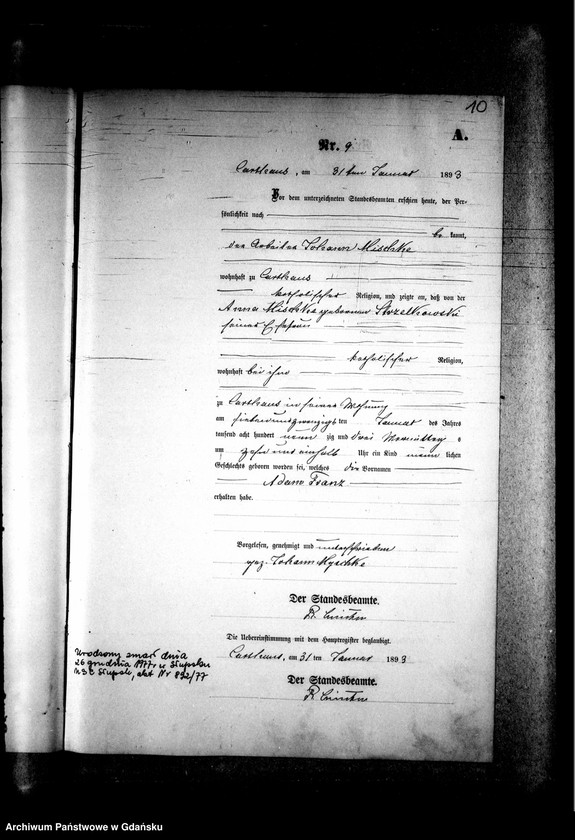 10
A.
Nr. 9
Carthaus, am 31ten Januar 1893
Vor dem unterzeichneten Standesbeamten erschien heute, der Per-
sönlichkeit nach
be kannt,
der Arbeiter Johann Mischke
wohnhaft zu Carthaus
katholischer Religion, und zeigte an, daß von der
Anna Mischke geborenen Strzelkowski
seiner Ehefrau
katholischer Religion,
wohnhaft bei ihm
zu Carthaus in seiner Wohnung
am siebenundzwanzigsten Januar des Jahres
tausend acht hundert neun zig und drei Vormittags
um zehn und einhalb Uhr ein Kind männ lichen
Geschlechts geboren worden sei, welches die Vornamen
Adam Franz
erhalten habe.
Vorgelesen, genehmigt und unterschrieben
gez. Johann Myschke
Der Standesbeamte.
Die Uebereinstimmung mit dem Hauptregister beglaubigt.
Carthaus, am 31 ten Januar 1893
Der Standesbeamte.
Urodzony zmarł dnia
26 grudnia 1977 r w Słupsku
USC Słupsk, akt Nr 892/77
Archiwum Państwowe w Gdańsku